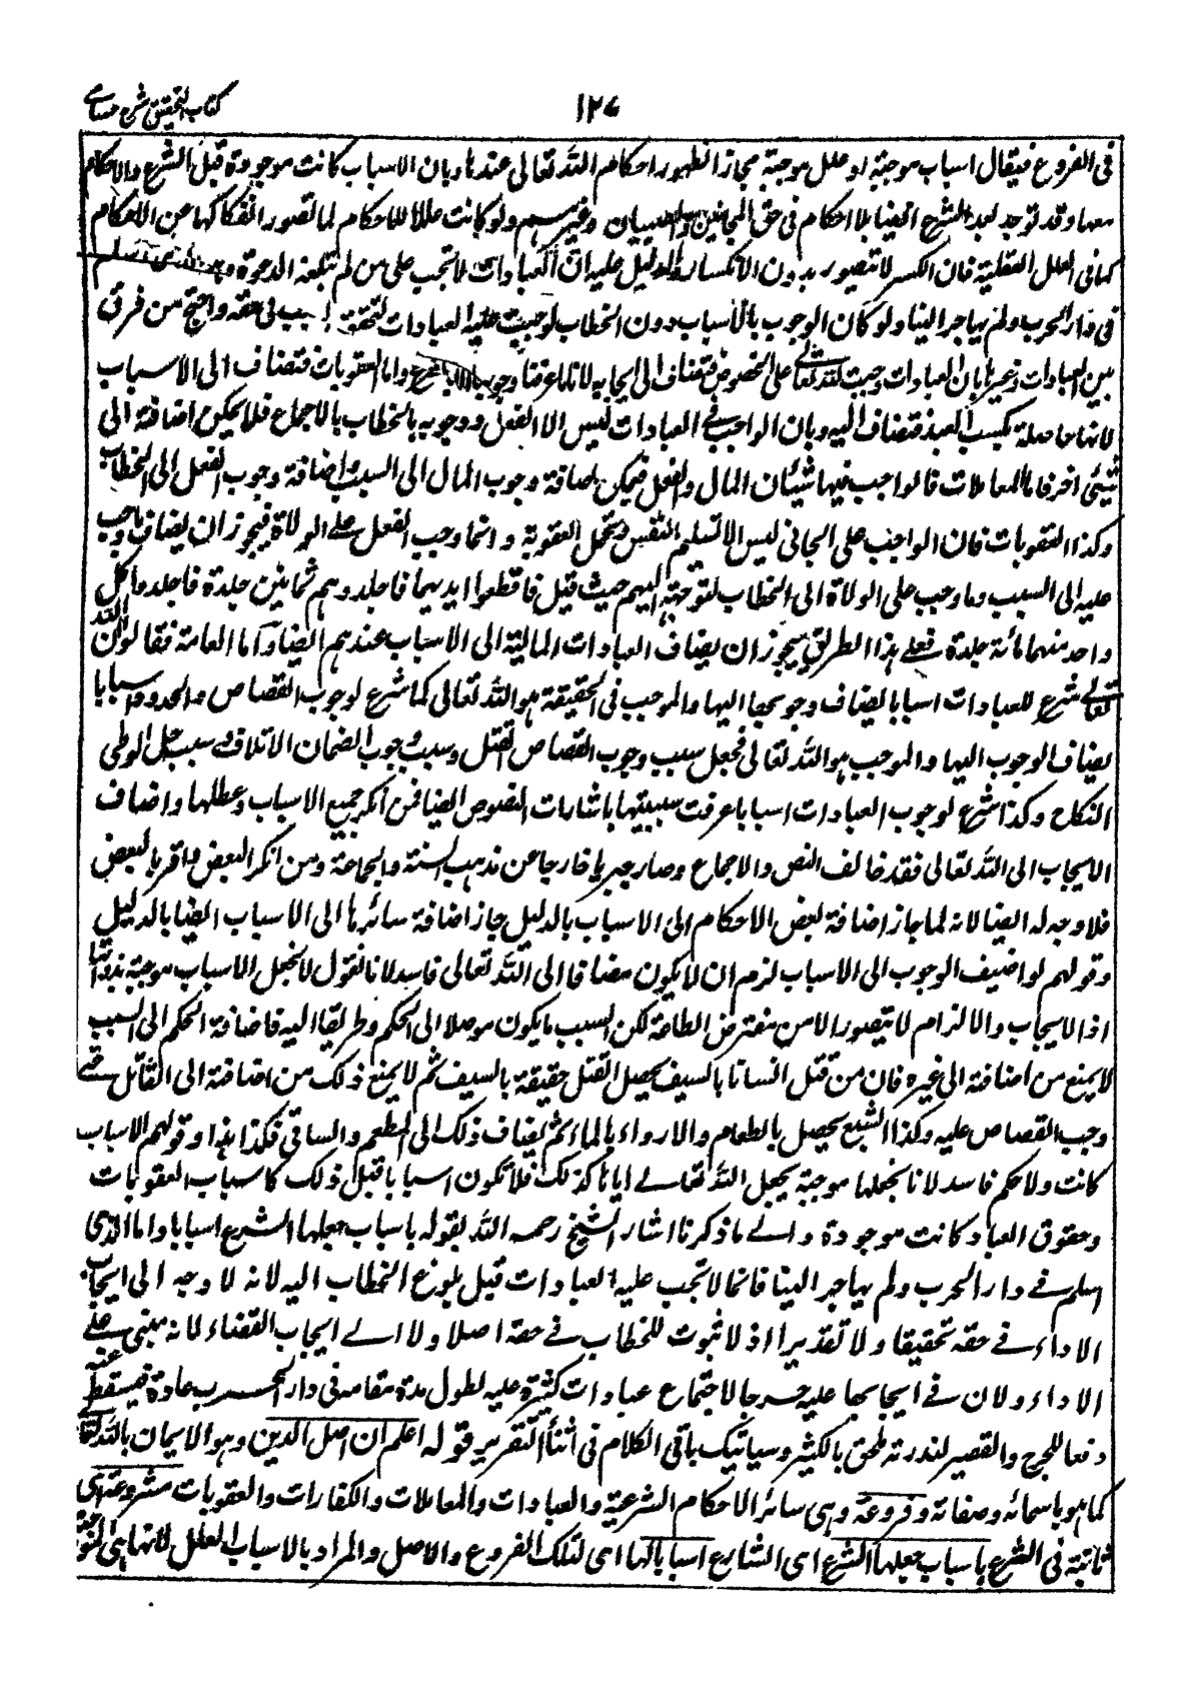 كتاب التحقيق شرح حسامي
١٢٧
في الفروع فيقال اسباب موجبة او علل موجبة مجازا لظهور احكام الله تعالى عندها وبان الاسباب كانت موجودة قبل الشرع والاحكام
معها وقد توجد بعد الشرع ايضا بلا احكام في حق المجانين والصبيان وغيرهم ولو كانت عللا للاحكام لما تصور انفكاكها عن الاحكام
كما في العلل العقلية فان الكسر لا تتصور بدون الانكسار والدليل عليه ان العبادات لا تجب على من لم تبلغه الدعوة وهو الذي اسلم
في دار الحرب ولم يهاجر الينا ولو كان الوجوب بالاسباب دون الخطاب لوجبت عليه العبادات لتحقق السبب في حقه واحتج من فرق
بين العبادات وغيرها بان العبادات وجبت لله تعالى على الخصوص فتضاف الى ايجابه لانا ما عرفنا وجوبها الا بالشرع واما العقوبات فتضاف الى الاسباب
لانها حاصلة بكسب العبد فتضاف اليه وبان الواجب في العبادات ليس الا الفعل ووجوبه بالخطاب بالاجماع فلا يمكن اضافته الى
شيئ اخر فاما المعاملات فالواجب فيها شيئان المال والفعل فيمكن اضافة وجوب المال الى السبب واضافة وجوب الفعل الى الخطاب
وكذا العقوبات فان الواجب على الجاني ليس الا تسليم النفس وتحمل العقوبة وانما وجب الفعل على الولاة فيجوز ان يضاف ما وجب
عليه الى السبب وما وجب على الولاة الى الخطاب لتوجهه اليهم حيث قيل فاقطعوا ايديهما فاجلدوهم ثمانين جلدة فاجلدوا كل
واحد منهما مائة جلدة فعلى هذا الطريق يجوز ان يضاف العبادات المالية الى الاسباب عندهم ايضا واما العامة فقالوا ان الله
تعالى شرع للعبادات اسبابا يضاف وجوبها اليها والموجب في الحقيقة هو الله تعالى كما شرع لوجوب القصاص والحدود اسبابا
يضاف الوجوب اليها والموجب هو الله تعالى فجعل سبب وجوب القصاص القتل وسبب وجوب الضمان الاتلاف وسبب حل الوطي
النكاح وكذا شرع لوجوب العبادات اسبابا عرفت سببيتها باشارات النصوص ايضا فمن انكر جميع الاسباب وعطلها واضاف
الايجاب الى الله تعالى فقد خالف النص والاجماع وصار جبريا خارجا عن مذهب السنة والجماعة ومن انكر البعض واقر بالبعض
فلا وجه له ايضا لانه لما جاز اضافة بعض الاحكام الى الاسباب بالدليل جاز اضافة سائرها الى الاسباب ايضا بالدليل
وقولهم لو اضيف الوجوب الى الاسباب لزم ان لا يكون مضافا الى الله تعالى فاسد لانا نقول لا نجعل الاسباب موجبة بذواتها
اذ الايجاب والالزام لا يتصور الا من مفترض الطاعة لكن السبب ما يكون موصلا الى الحكم وطريقا اليه فاضافة الحكم الى السبب
لا يمنع من اضافته الى غيره فان من قتل انسانا بالسيف يحصل القتل حقيقة بالسيف ثم لا يمنع ذلك من اضافته الى القاتل حتى
وجب القصاص عليه وكذا الشبع يحصل بالطعام والارواء بالماء ثم يضاف ذلك الى المطعم والساقي فكذا هذا وقولهم الاسباب
كانت ولا حكم فاسد لانا نجعلها موجبة بجعل الله تعالى اياها كذلك فلا تكون اسبابا قبل ذلك كاسباب العقوبات
وحقوق العباد كانت موجودة والى ما ذكرنا اشار الشيخ رحمه الله بقوله باسباب جعلها الشرع اسبابا واما الذي
اسلم في دار الحرب ولم يهاجر الينا فانما لا تجب عليه العبادات قبل بلوغ الخطاب اليه لانه لا وجه الى ايجاب
الاداء في حقه تحقيقا ولا تقديرا اذ لا ثبوت للخطاب في حقه اصلا ولا الى ايجاب القضاء لانه مبني على
الاداء ولان في ايجابها عليه حرجا لاجتماع عبادات كثيرة عليه لطول مدة مقامه في دار الحرب عادة فيسقط عنه
دفعا للحرج والقصير لندرته ملحق بالكثير وسياتيك باقي الكلام في اثناء التقرير قوله اعلم ان اصل الدين وهو الايمان بالله تعالى
كما هو باسمائه وصفاته وفروعه وهي سائر الاحكام الشرعية والعبادات والمعاملات والكفارات والعقوبات مشروعة اي
ثابتة في الشرع باسباب جعلها الشرع اي الشارع اسبابا لها اي لتلك الفروع والاصل والمراد بالاسباب العلل لانها هي